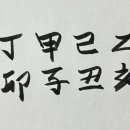 丁甲己乙
卯子丑亥